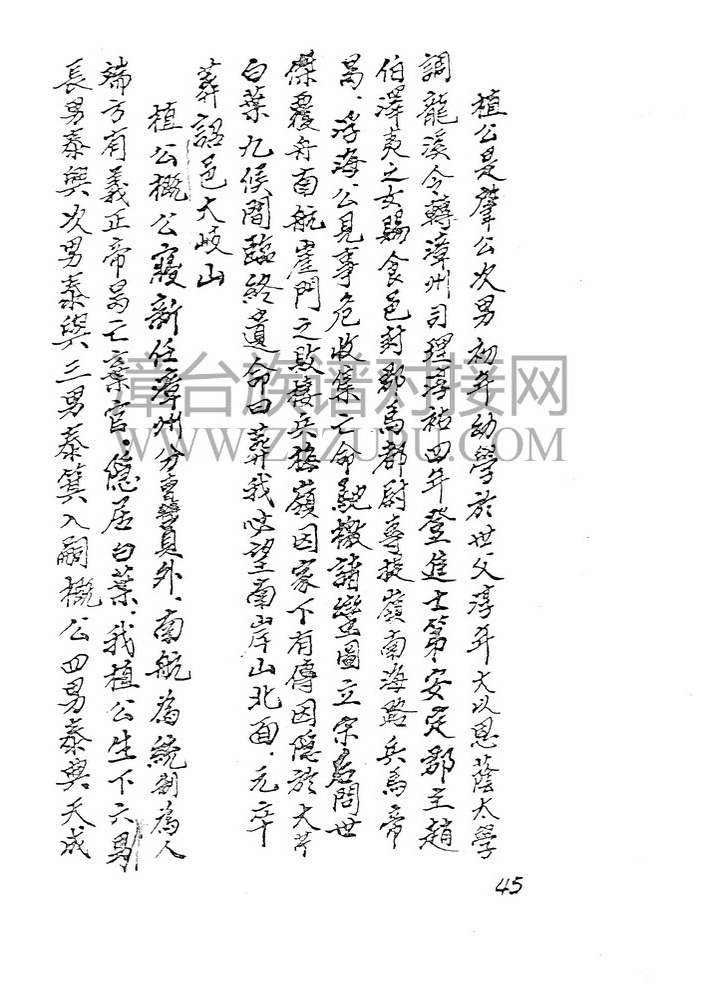 植公是肇公次男初年幼學於世父淳年大以恩蔭太學
調龍溪令轉漳州司理淳祐四年登進士第安定郡主趙
伯澤夷之女賜食邑封郡馬都尉專提嶺南海路兵馬帝
昺、浮海公見事危收集亡命馳檄諸蠻圖立宗後問世
傑覆舟南航崖門之敗棲兵梅嶺因家下有傳因隱於大芹
白葉九侯間臨終遺命曰葬我必望南岸山北面、元卒
葬詔邑大岐山
植公概公寢新任漳州分曹員外、南航為統制為人
端方有義正帝昺亡棄官、隱居白葉、我植公生下六男
長男泰興次男泰與三男泰箕入嗣概公四男泰典天成
45
漳台族谱对接网
WWW.ZTZUPU.COM